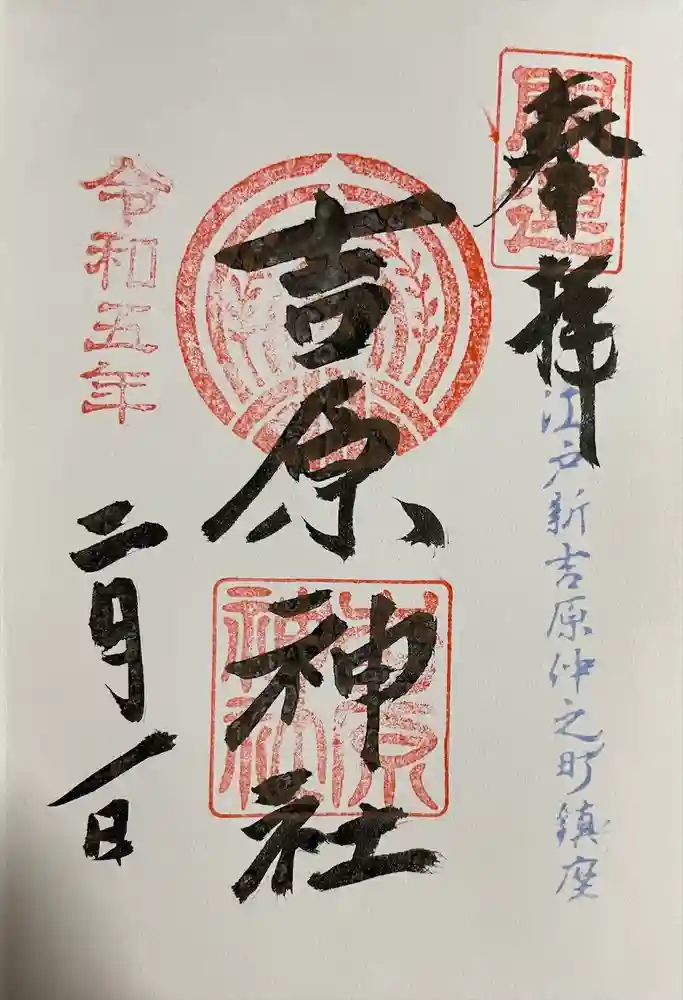 開運
奉拝
江戸新吉原仲之町鎮座
吉原神社
吉原
神社
令和五年
二月一日